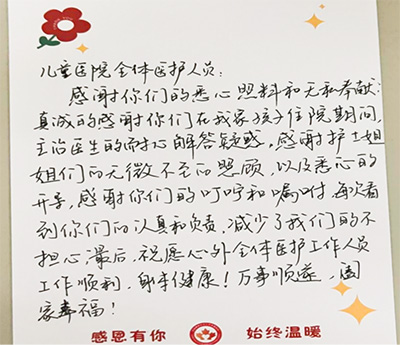 儿童医院全体医护人员:
感谢你们的悉心照料和无私奉献:
真诚的感谢你们在我家孩子住院期间,
主治医生的耐心解答疑惑,感谢护士姐
姐们的无微不至的照顾,以及悉心的
开导,感谢你们的叮咛和嘱咐,每次看
到你们的认真和负责,减少了我们的不
担心,最后,祝愿心外全体医护工作人员
工作顺利,身体健康!万事顺遂,阖
家幸福!
感恩有你 始终温暖